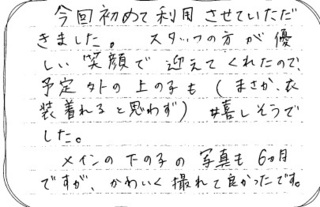 今回初めて利用させていただ
きました。 スタッフの方が優
しい笑顔で迎えてくれたので、
予定外の上の子も(まさか、衣
装着れると思わず)嬉しそうで
した。
メインの下の子の写真も6ヵ月
ですが、かわいく撮れて良かったです。